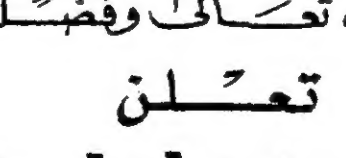 تعالى وفضل
تعلن